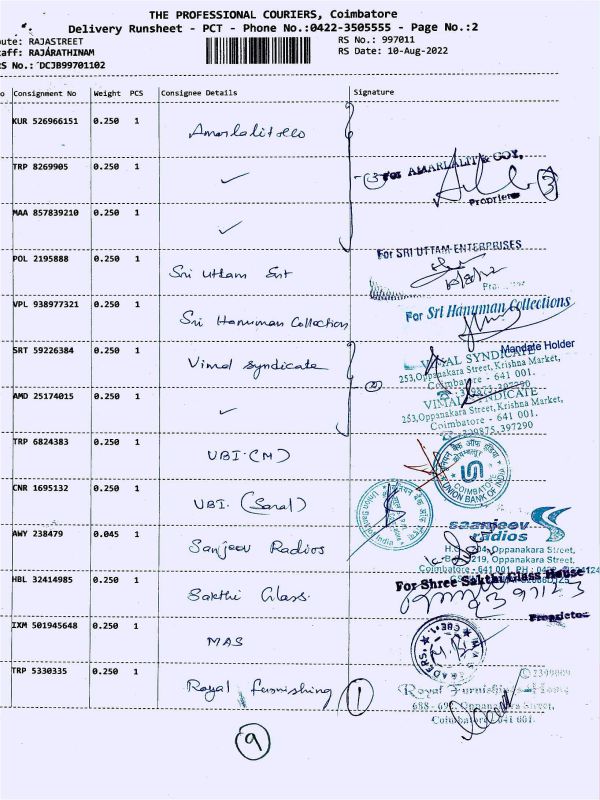 THE PROFESSIONAL COURIERS, Coimbatore
Delivery Runsheet - PCT - Phone No.:0422-3505555 - Page No.:2
oute: RAJASTREET RS No.: 997011
taff: RAJARATHINAM RS Date: 10-Aug-2022
RS No.: DCJB99701102
o Consignment No Weight PCS Consignee Details Signature
KUR 526966151 0.250 1 Amarlalit &co
TRP 8269905 0.250 1 ✓ 3 For AMARLALIT & COY, 3
Proprietor
MAA 857839210 0.250 1 ✓
For SRI UTTAM ENTERPRISES
POL 2195888 0.250 1 Sri Uttam Ent
VPL 938977321 0.250 1 Sri Hanuman Collection For Sri Hanuman Collections
Mandate Holder
SRT 59226384 0.250 1 Vimal syndicate VIMAL SYNDICATE
253, Oppanakara Street, Krishna Market,
Coimbatore - 641 001.
AMD 25174015 0.250 1 ✓ VIMAL SYNDICATE
253, Oppanakara Street, Krishna Market,
Coimbatore - 641 001.
397290
TRP 6824383 0.250 1 UBI (M)
COIMBATORE
UNION BANK OF INDIA
CNR 1695132 0.250 1 UBI. (Saral)
AWY 238479 0.045 1 Sanjeev Radios saanjeev
radios
Oppanakara Street,
219, Oppanakara Street,
Coimbatore - 641 001.
HBL 32414985 0.250 1 Sakthi Glass For Shree Sakthi Glass House
Proprietor
IXM 501945648 0.250 1 MAS
TRP 5330335 0.250 1 Royal furnishing 1 Royal Furnishings Home
Coimbatore - 641 001.
9